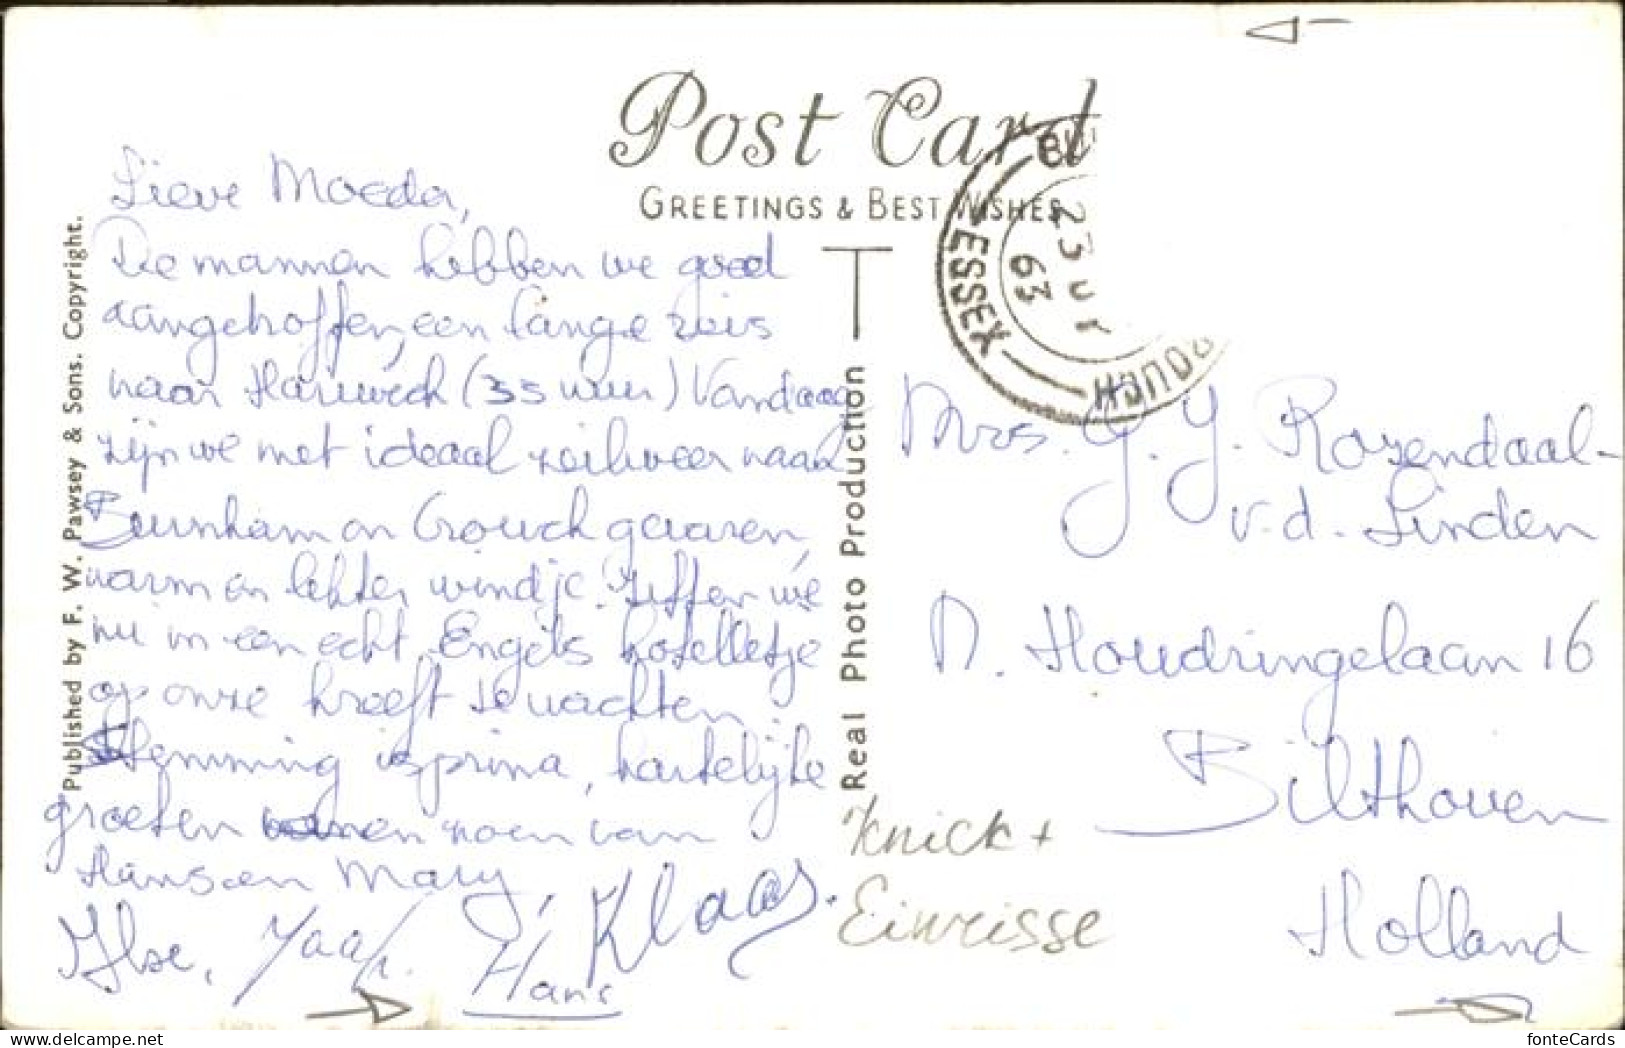 Post Card
GREETINGS & BEST WISHES
Published by F. W. Pawsey & Sons. Copyright.
Real Photo Production
ESSEX
23
63
Lieve Moeder,
De mannen hebben we goed
aangetroffen, een lange reis
naar Harwich (35 uur) Vandaag
zijn we met ideaal zeilweer naar
Burnham on Crouch gevaren,
warm en lekker windje. Zitten we
nu in een echt Engels hotelletje
op onze kreeft te wachten
Stemming is prima, hartelijke
groeten zoen van
Hans en Mary,
Ilse, Jaap. Hans Klaas.
Mrs. J. J. Rozendaal-
v.d. Linden
N. Houdringelaan 16
Bilthoven
Holland
Knick +
Einrisse
fonteCards